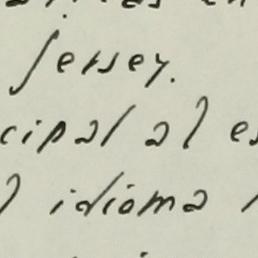 Jersey.
cipal al es
idioma